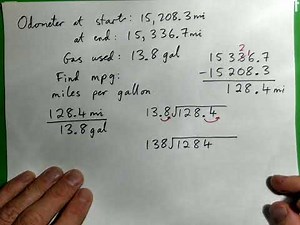 Odometer at start: 15,208.3 mi
at end: 15,336.7 mi
Gas used: 13.8 gal
Find mpg:
miles per gallon
2 1
15 336.7
- 15 208.3
128.4 mi
128.4 mi
13.8 gal
13.8√128.4
138√1284